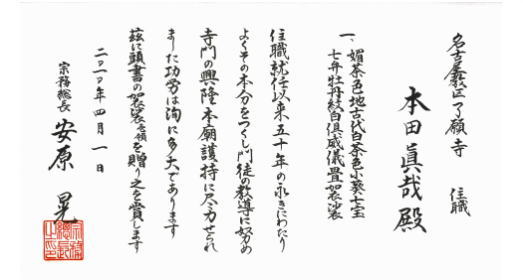 名古屋教区了願寺 住職
本田眞哉殿
一、媚茶色地古代白茶色小葵七宝
七弁牡丹紋白倶威儀畳袈裟
住職就任以来五十年の永きにわたり
よくその本分をつくし門徒の教導に努め
寺門の興隆本廟護持に尽力せられ
ました功労は洵に多大であります
茲に頭書の袈裟壱領を贈り之を賞します
二〇一〇年四月一日
宗務総長 安原晃